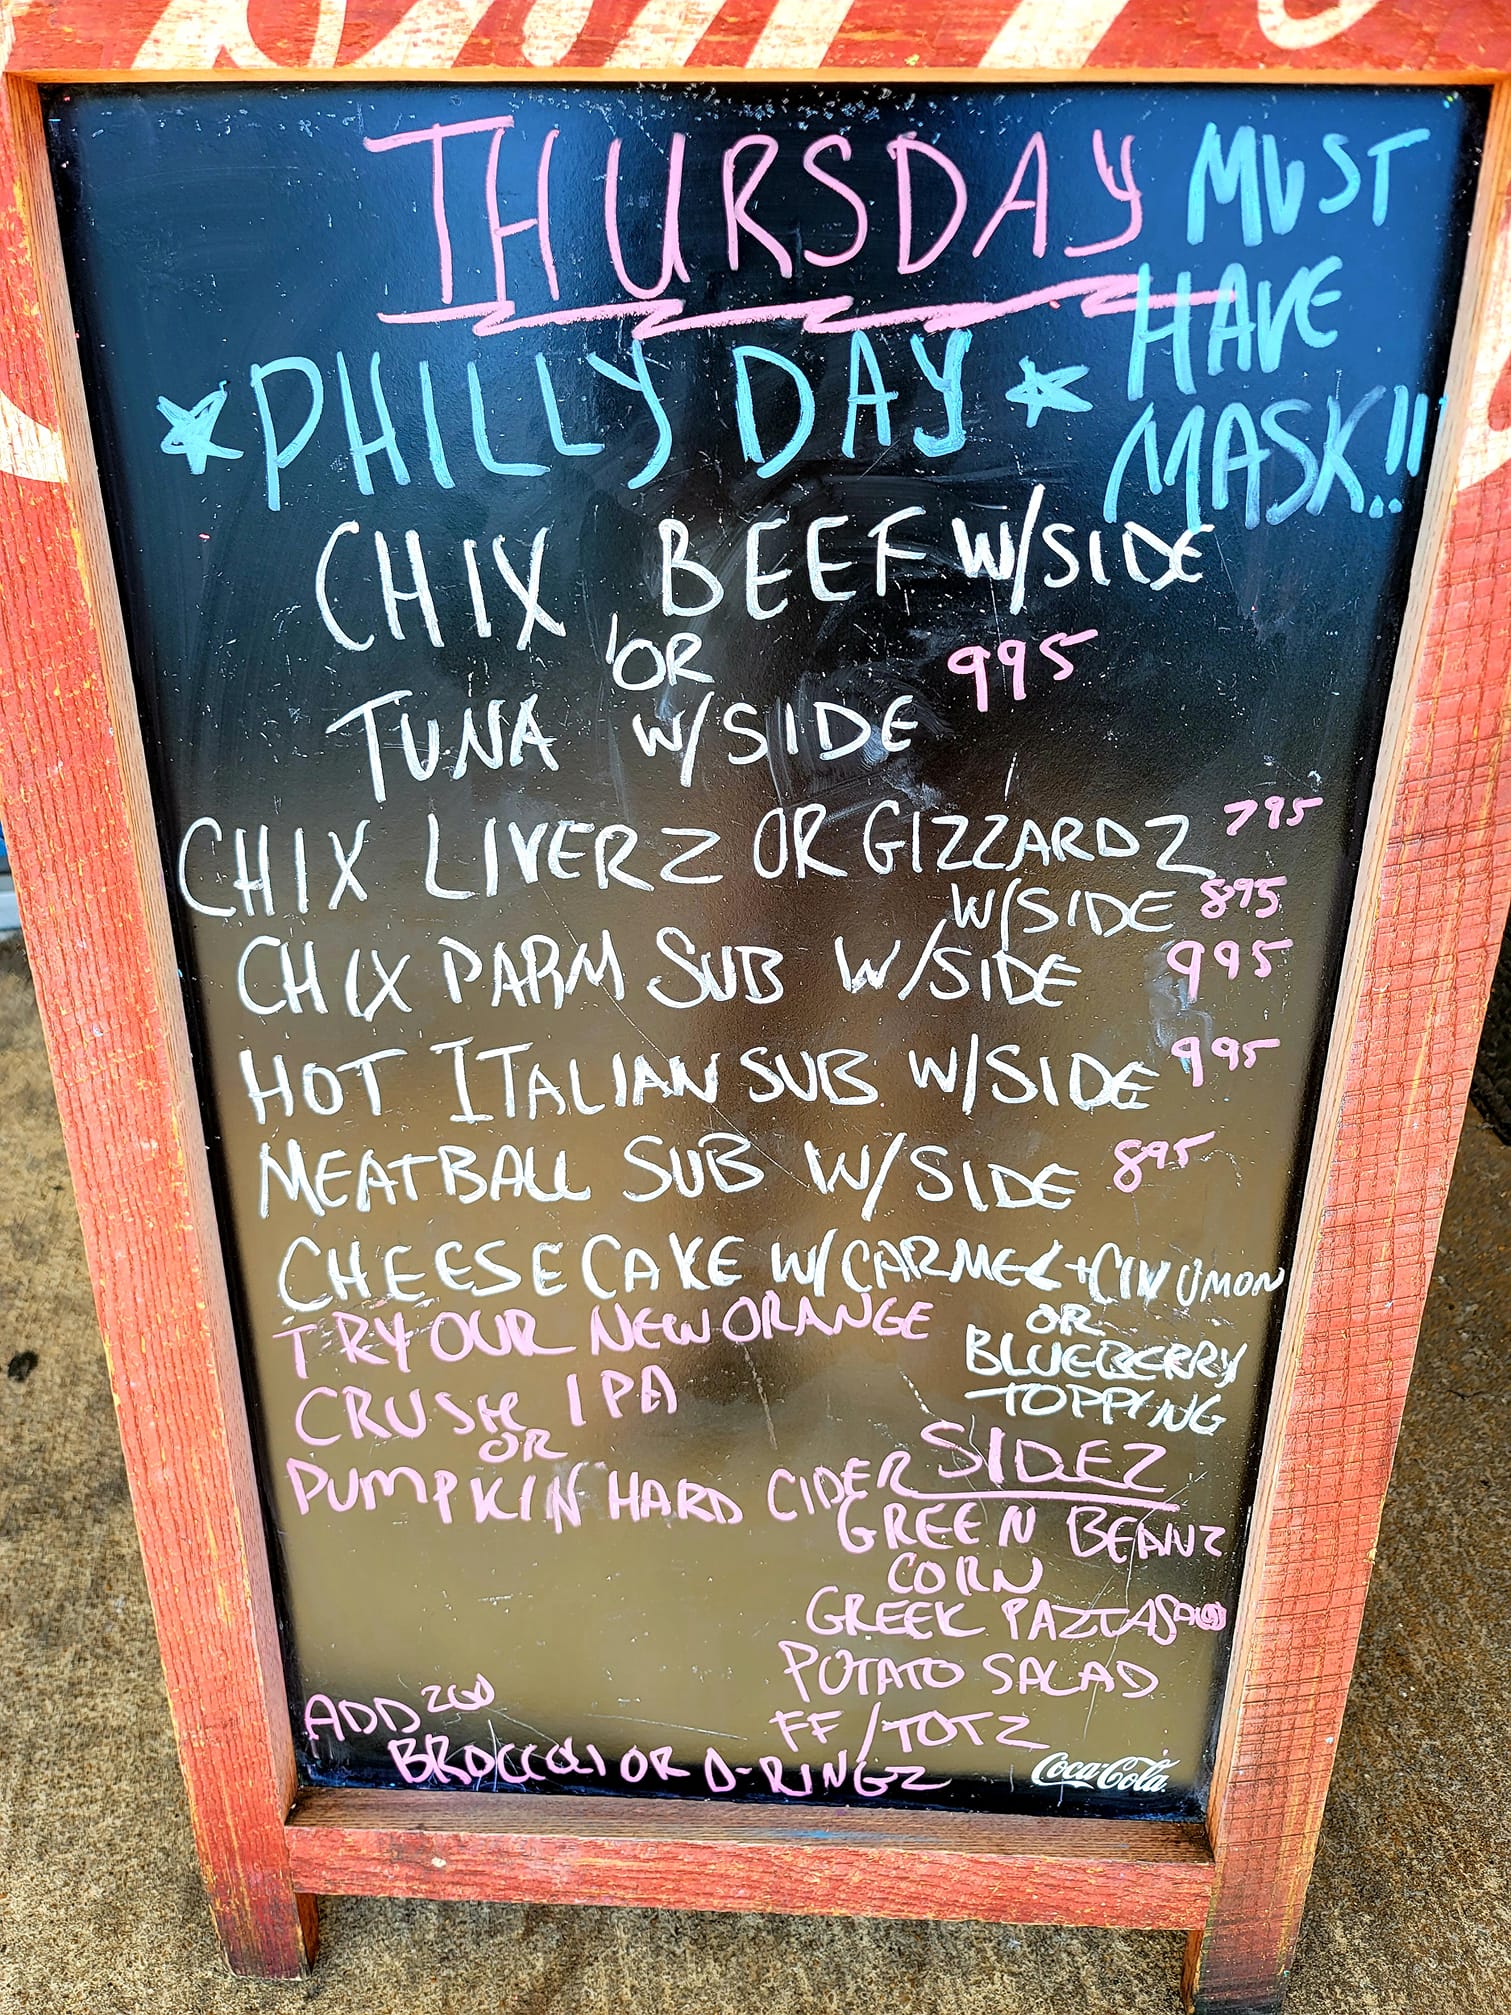 THURSDAY
MUST
HAVE
MASK!!
PHILLY DAY
CHIX BEEF W/SIDE
OR
TUNA W/SIDE 995
CHIX LIVERZ OR GIZZARDZ 795
W/SIDE 895
CHIX PARM SUB W/SIDE 995
HOT ITALIAN SUB W/SIDE 995
MEATBALL SUB W/SIDE 895
CHEESECAKE W/CARMEL+CINUMON
OR
BLUEBERRY
TOPPING
TRY OUR NEW ORANGE
CRUSH IPA
OR
PUMPKIN HARD CIDER
SIDEZ
GREEN BEANZ
CORN
GREEK PAZTA
POTATO SALAD
FF/TOTZ
ADD 200
BROCCOLI OR O-RINGZ
Coca-Cola